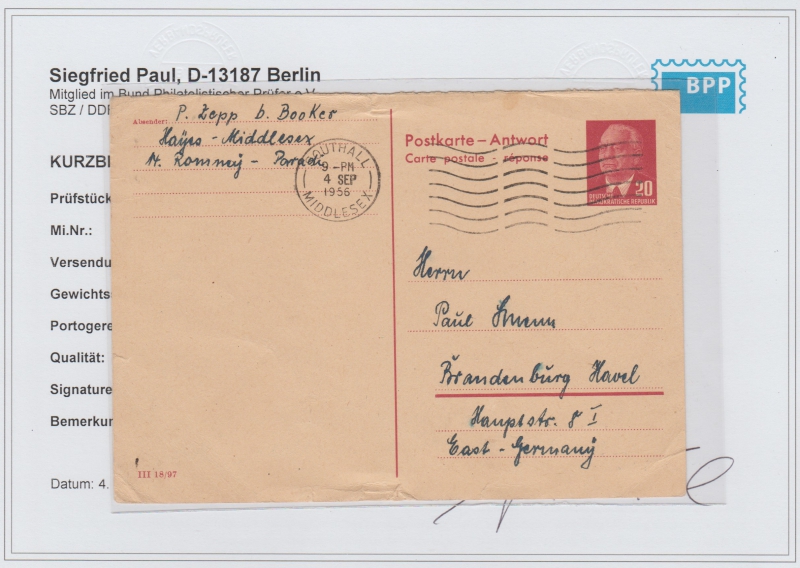 Siegfried Paul, D-13187 Berlin
Mitglied im Bund Philatelistischer Prüfer e.V.
SBZ / DDR
BPP
KURZB
Prüfstück
Mi.Nr.:
Versendu
Gewichts
Portogere
Qualität:
Signature
Bemerkun
Datum: 4.
Absender:
P. Zepp b. Booker
Hayes - Middlesex
Romney - Parade
SOUTHALL
9 - PM
4 SEP
1956
MIDDLESEX
Postkarte – Antwort
Carte postale – réponse
20
DEUTSCHE
DEMOKRATISCHE REPUBLIK
Herrn
Paul
Brandenburg Havel
Hauptstr. 8 I
East - Germany
III 18/97